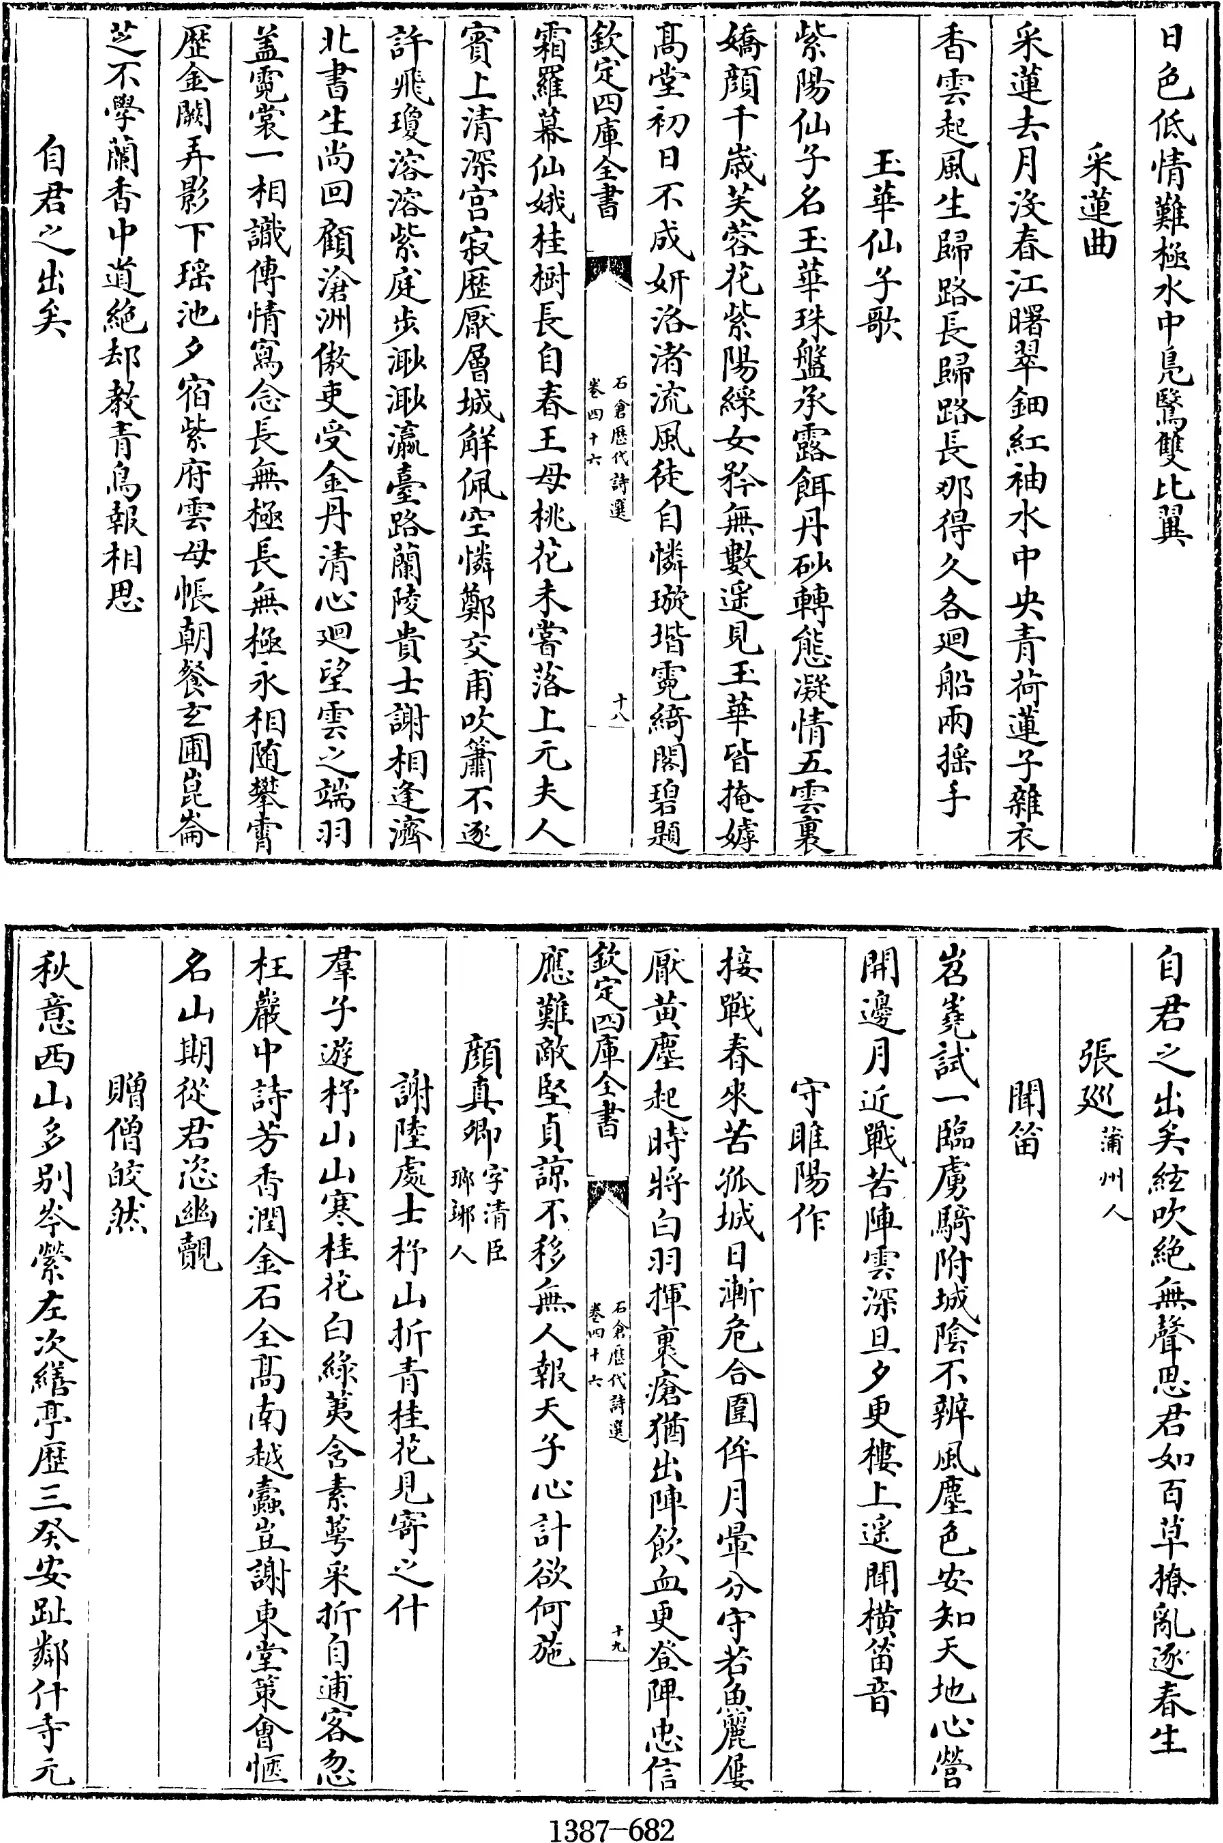 日色低情難極水中鳧鷖雙比翼
采蓮曲
采蓮去月没春江曙翠鈿紅袖水中央青荷蓮子雜衣
香雲起風生歸路長歸路長那得久各廻船兩揺手
玉華仙子歌
紫陽仙子名玉華珠盤承露餌丹砂轉態凝情五雲裏
嬌顔千歳芙蓉花紫陽綵女矜無數遥見玉華皆掩嫭
髙堂初日不成妍洛渚流風徒自憐璇堦霓綺閣碧題
欽定四庫全書
石倉歴代詩選
卷四十六
十八
霜羅幕仙娥桂樹長自春王母桃花未嘗落上元夫人
賓上清深宫寂歴厭層城解佩空憐鄭交甫吹簫不逐
許飛瓊溶溶紫庭步渺渺瀛臺路蘭陵貴士謝相逢濟
北書生尚回顧滄洲傲吏受金丹清心廻望雲之端羽
盖霓裳一相識傳情寫念長無極長無極永相随攀霄
歴金闕弄影下瑶池夕宿紫府雲母帳朝餐𤣥圃崑崙
芝不學蘭香中道絶却教青鳥報相思
自君之出矣
自君之出矣絃吹絶無聲思君如百草撩亂逐春生
張廵 蒲州人
聞笛
岧嶤試一臨虜騎附城隂不辨風塵色安知天地心營
開邊月近戰苦陣雲深旦夕更樓上遥聞横笛音
守睢陽作
接戰春來苦孤城日漸危合圍侔月暈分守若魚麗屢
厭黄塵起時將白羽揮裏瘡猶出陣飲血更登陴忠信
欽定四庫全書
石倉歴代詩選
卷四十六
十九
應難敵堅貞諒不移無人報天子心計欲何施
顔真卿 字清臣瑯琊人
謝陸處士杼山折青桂花見寄之什
羣子遊杼山山寒桂花白緑荑含素萼采折自逋客忽
枉巖中詩芳香潤金石全髙南越蠧豈謝東堂策會愜
名山期從君恣幽覿
贈僧皎然
秋意西山多别岑縈左次繕亭歴三癸安趾鄰什寺元
1387-682